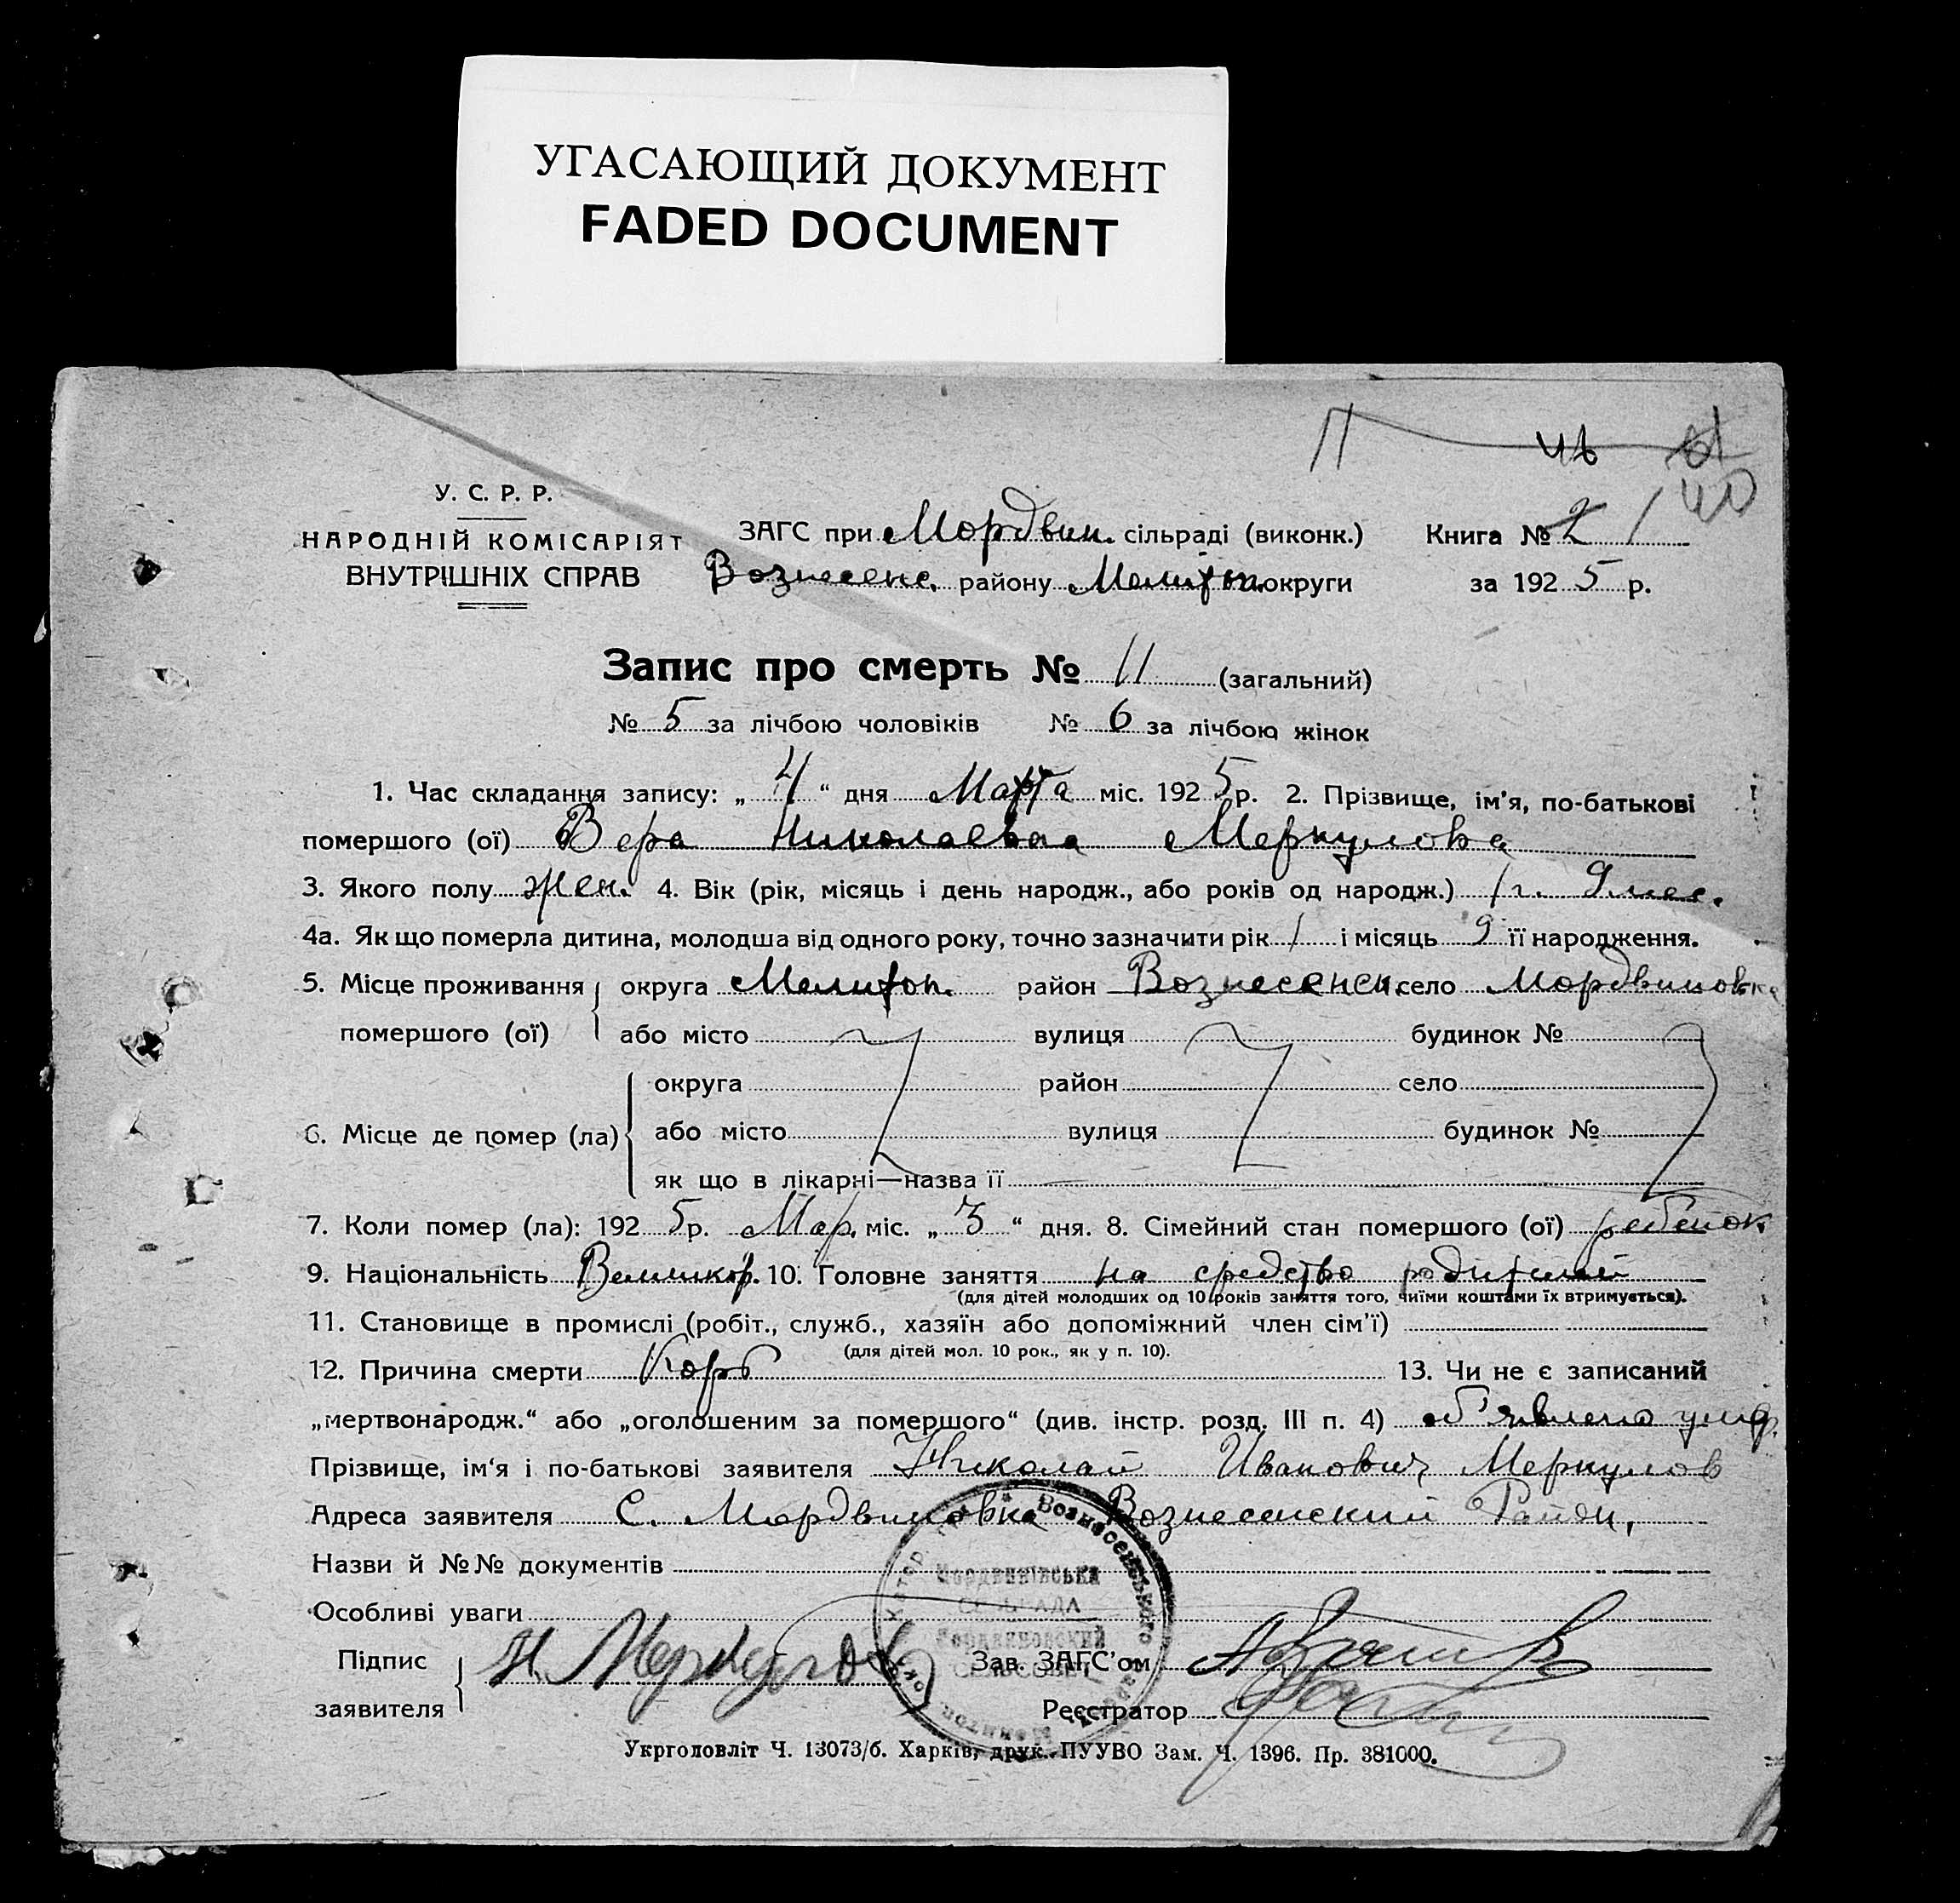 УГАСАЮЩИЙ ДОКУМЕНТ
FADED DOCUMENT
У. С. Р. Р.
НАРОДНІЙ КОМІСАРІЯТ
ВНУТРІШНІХ СПРАВ
ЗАГС при Мордвин. сільраді (виконк.)
Вознесенс. району Мелитоп. округи
Книга № 2 1
за 1925 р.
11 46 40
Запис про смерть № 11 (загальний)
№ 5 за лічбою чоловіків № 6 за лічбою жінок
1. Час складання запису: „ 4 “ дня Марта міс. 1925 р. 2. Прізвище, ім'я, по-батькові
помершого (ої) Вера Николаевна Меркулова
3. Якого полу жен. 4. Вік (рік, місяць і день народж., або років од народж.) 1 г. 9 мес.
4а. Як що померла дитина, молодша від одного року, точно зазначити рік 1 і місяць 9 її народження.
5. Місце проживання округа Мелитоп. район Вознесенск. село Мордвиновка
помершого (ої) або місто вулиця будинок №
округа район село
6. Місце де помер (ла) або місто вулиця будинок №
як що в лікарні—назва її
7. Коли помер (ла): 1925 р. Мар. міс. „ 3 “ дня. 8. Сімейний стан помершого (ої) ребенок
9. Національність Великор. 10. Головне заняття на средство родителей
(для дітей молодших од 10 років заняття того, чиїми коштами їх втримується).
11. Становище в промислі (робіт., служб., хазяїн або допоміжний член сім'ї)
(для дітей мол. 10 рок., як у п. 10).
12. Причина смерти Корь 13. Чи не є записаний
„мертвонародж.“ або „оголошеним за помершого“ (див. інстр. розд. III п. 4) об'явлено
Прізвище, ім'я і по-батькові заявителя Николай Иванович Меркулов
Адреса заявителя С. Мордвиновка Вознесенский Район,
Назви й №№ документів
Особливі уваги
Підпис
заявителя
Н. Меркулов
Зав. ЗАГС'ом
Реєстратор
Вознесенського
Мордвинівська
СІЛЬРАДА
Мордвиновский
СЕЛЬСОВЕТ
Укрголовліт Ч. 13073/б. Харків, друк. ПУУВО Зам. Ч. 1396. Пр. 381000.